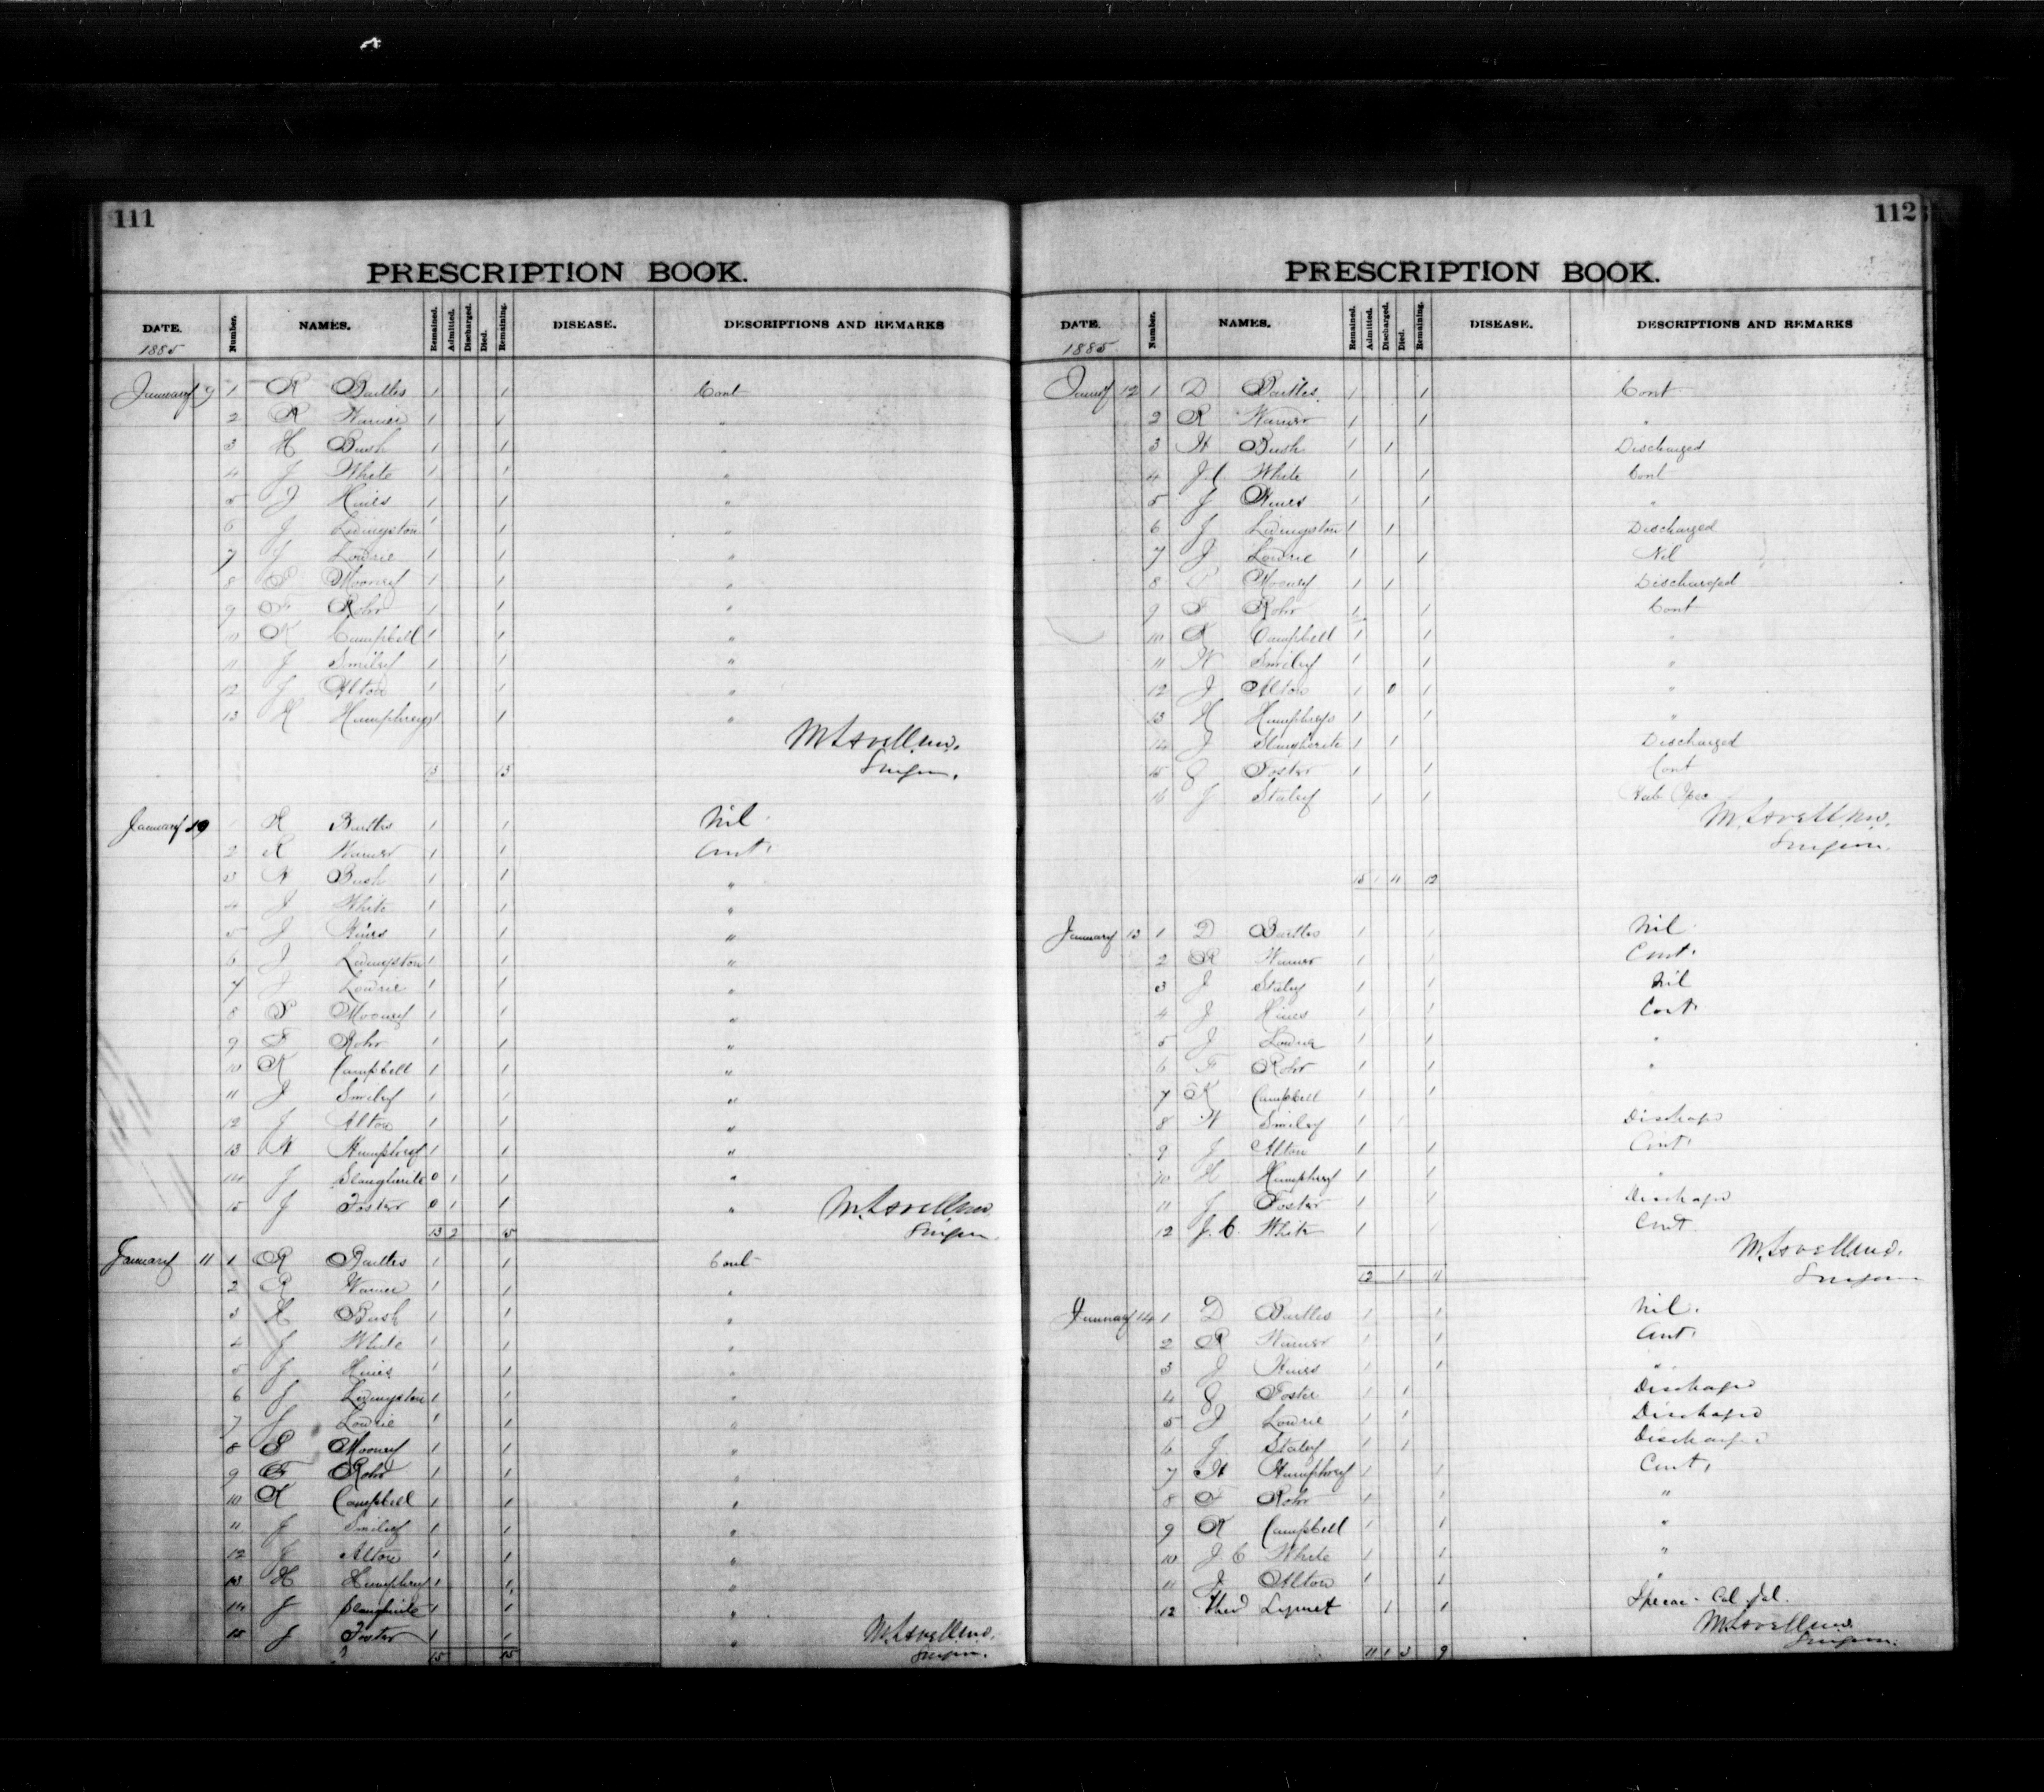 111
PRESCRIPTION BOOK.
DATE. Number. NAMES. Remained. Admitted. Discharged. Died. Remaining. DISEASE. DESCRIPTIONS AND REMARKS
1885
January 9 1 R Bartles 1 1 Cont
2 R Warner 1 1 "
3 H Bush 1 1 "
4 J White 1 1 "
5 J Hines 1 1 "
6 J Livingston 1 1 "
7 J Lowrie 1 1 "
8 P Mooney 1 1 "
9 F Rohr 1 1 "
10 K Campbell 1 1 "
11 J Smiley 1 1 "
12 J Alton 1 1 "
13 H Humphreys 1 1 "
M. Lavell M.D.
Surgeon.
13 13
January 10 1 R Bartles 1 1 Nil
2 R Warner 1 1 Cont.
3 H Bush 1 1 "
4 J White 1 1 "
5 J Hines 1 1 "
6 J Livingston 1 1 "
7 J Lowrie 1 1 "
8 P Mooney 1 1 "
9 F Rohr 1 1 "
10 K Campbell 1 1 "
11 J Smiley 1 1 "
12 J Alton 1 1 "
13 H Humphrey 1 1 "
14 J Slaughnite 0 1 1 "
15 J Foster 0 1 1 "
M. Lavell M.D.
13 2 5 Surgeon.
January 11 1 R Bartles 1 1 Cont
2 R Warner 1 1 "
3 H Bush 1 1 "
4 J White 1 1 "
5 J Hines 1 1 "
6 J Livingston 1 1 "
7 J Lowrie 1 1 "
8 P Mooney 1 1 "
9 F Rohr 1 1 "
10 K Campbell 1 1 "
11 J Smiley 1 1 "
12 J Alton 1 1 "
13 H Humphrey 1 1 "
14 J Slaughnite 1 1 "
15 J Foster 1 1 "
M. Lavell M.D.
15 15 Surgeon.
112
PRESCRIPTION BOOK.
DATE. Number. NAMES. Remained. Admitted. Discharged. Died. Remaining. DISEASE. DESCRIPTIONS AND REMARKS
1885
12 1 D Bartles 1 1 Cont
2 R Warner 1 1 "
3 H Bush 1 1 Discharged
4 J.C White 1 1 Cont
5 J Hines 1 1 "
6 J Livingston 1 1 Discharged
7 J Lowrie 1 1 Nil
8 P Mooney 1 1 Discharged
9 F Rohr 1 1 Cont
10 K Campbell 1 1 "
11 W Smiley 1 1 "
12 J Alton 1 0 1 "
13 H Humphreys 1 1 "
14 J Slaughnite 1 1 Discharged
15 J Foster 1 1 Cont
16 J Staley 1 1
M. Lavell M.D.
Surgeon.
15 1 4 12
January 13 1 D Bartles 1 1 Nil
2 R Warner 1 1 Cont.
3 J Staley 1 1 Nil
4 J Hines 1 1 Cont
5 J Lowrie 1 1 "
6 F Rohr 1 1 "
7 K Campbell 1 1
8 W Smiley 1 1 Discharged
9 J Alton 1 1 Cont.
10 H Humphrey 1 1 "
11 J Foster 1 1 Discharged
12 J. C. White 1 1 Cont.
M. Lavell M.D.
12 1 11 Surgeon
January 14 1 D Bartles 1 1 Nil.
2 R Warner 1 1 Cont.
3 J Hines 1 1 "
4 J Foster 1 1 Discharged
5 J Lowrie 1 1 Discharged
6 J Staley 1 1 Discharged
7 H Humphrey 1 1 Cont.
8 F Rohr 1 1 "
9 K Campbell 1 1 "
10 J. C White 1 1 "
11 J Alton 1 1 "
12 1 1 Ipecac. Cal. Jal.
M. Lavell M.D.
11 1 3 9 Surgeon.